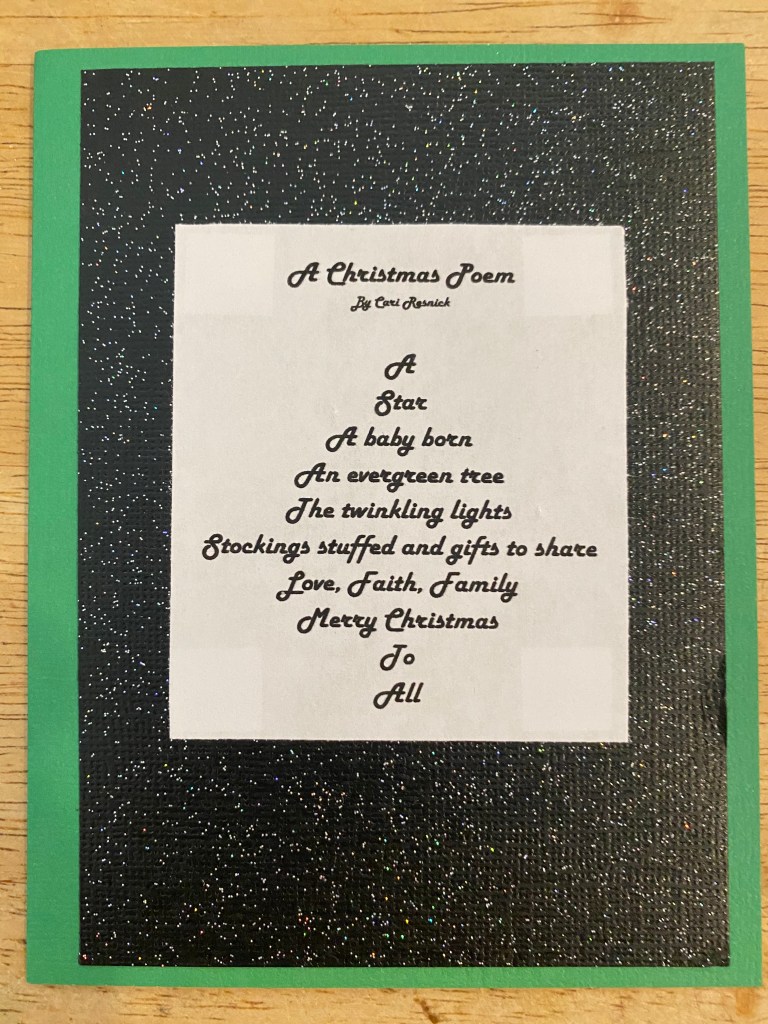 A Christmas Poem
By Cari Resnick
A
Star
A baby born
An evergreen tree
The twinkling lights
Stockings stuffed and gifts to share
Love, Faith, Family
Merry Christmas
To
All